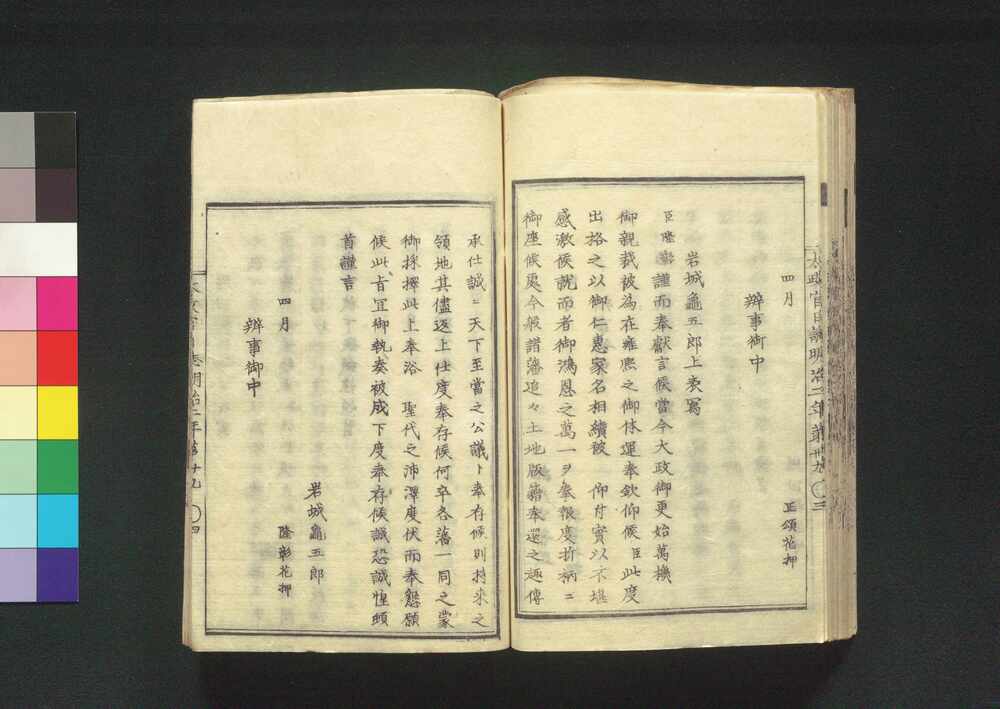 四月
正頌花押
辨事御中
岩城龜五郎上表寫
臣隆彰謹而奉獻言候當今大政御更始萬機
御親裁被為在雍熙之御休運奉欽仰候臣此度
出格之以御仁惠家名相續被 仰付實以不堪
感激候就而者御鴻恩之萬一ヲ奉報度折柄ニ
御座候處今般諸藩追々土地版籍奉還之趣傳
太政官日誌明治二年第卅九 三
承仕誠ニ天下至當之公議ト奉存候則持來之
領地其儘返上仕度奉存候何卒各藩一同之蒙
御採擇此上奉浴 聖代之沛澤度伏而奉懇願
候此旨宜御執奏被成下度奉存候誠恐誠惶頓
首謹言
四月
岩城龜五郎
隆彰花押
辨事御中
四